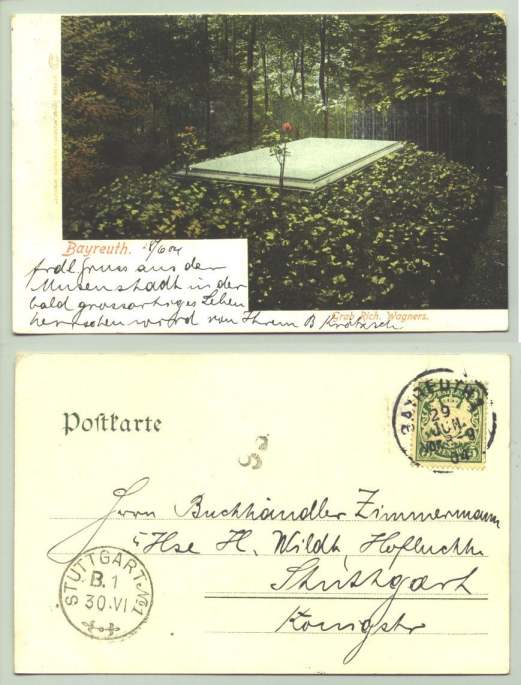 Bayreuth. 28/6 04
frdl Gruss aus der
Musenstadt in der
bald grossartiges Leben
herrschen wird von Ihrem B
Grab Rich. Wagners.
Postkarte
BAYREUTH
29
JUN
04
Herrn Buchhändler Zimmermann
Hse H. Wildt, Hofbuchh.
Stuttgart
Königstr
STUTTGART. No1
B.1
30.VI